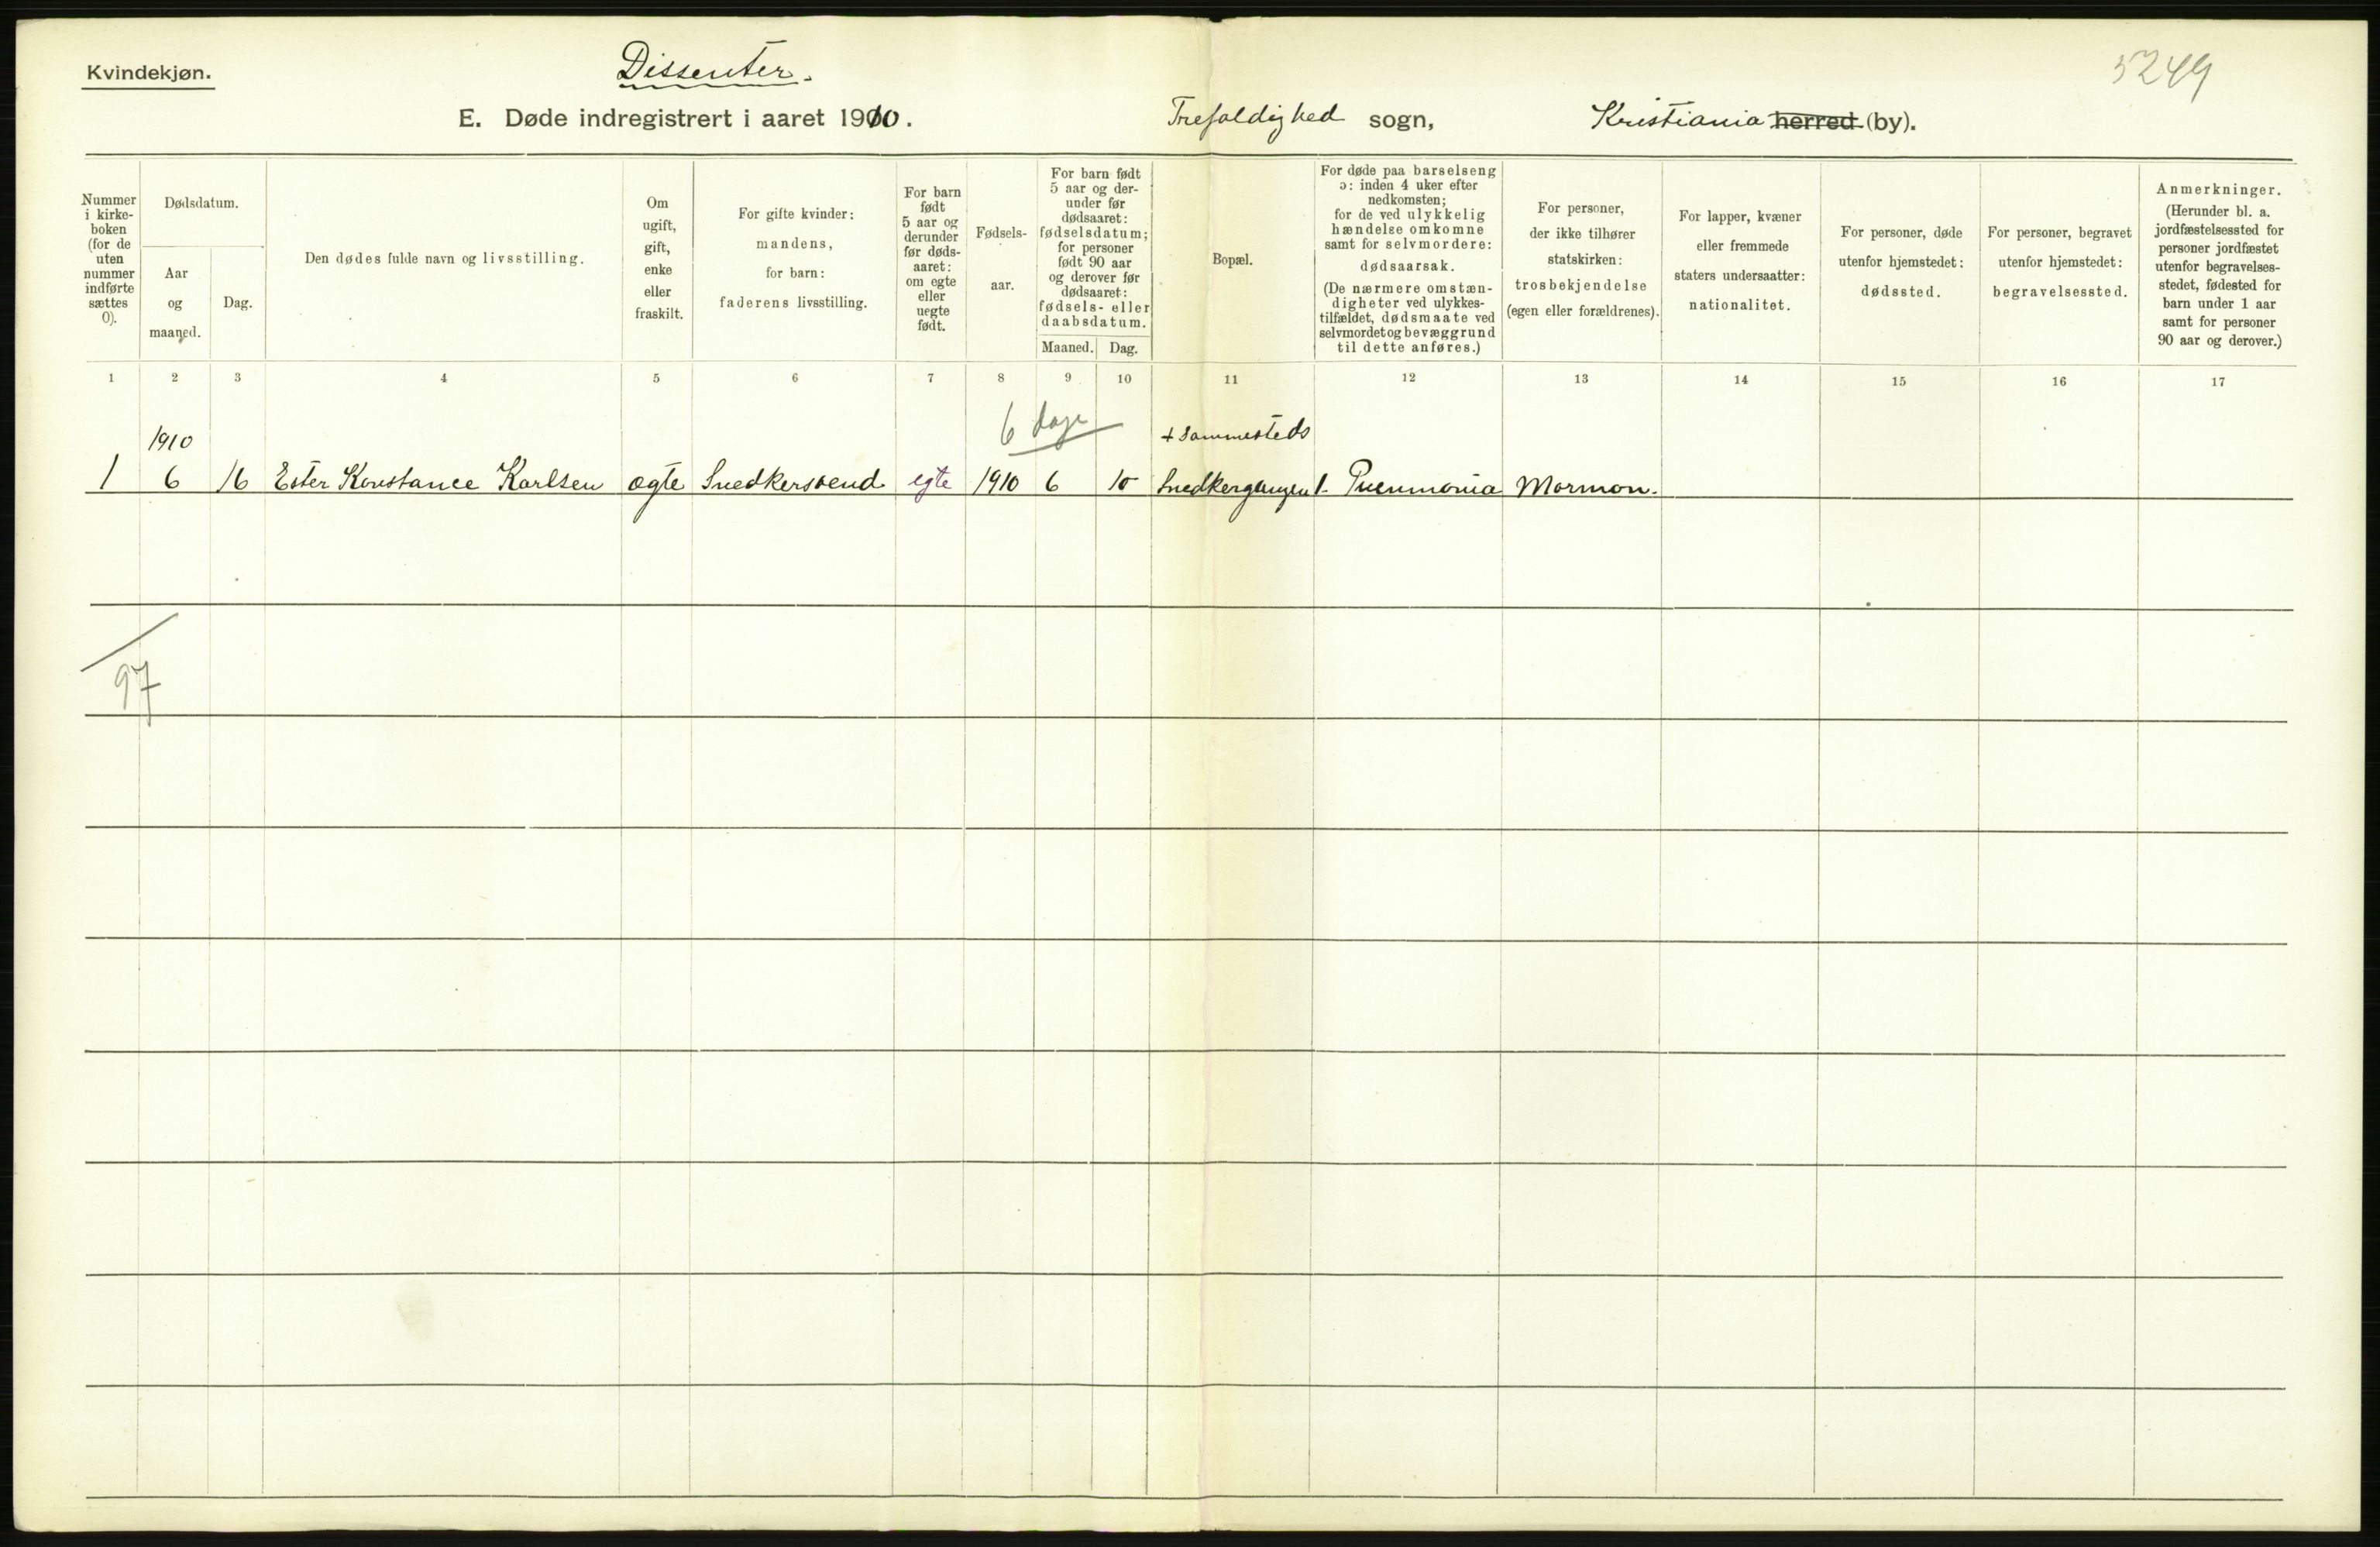 Kvindekjøn.
Dissenter.
5249
E. Døde indregistrert i aaret 1910.
Trefoldighed sogn,
Kristiania herred (by).
Nummer
i kirke-
boken
(for de
uten
nummer
indførte
sættes
0).
Dødsdatum.
Aar
og
maaned.
Dag.
Den dødes fulde navn og livsstilling.
Om
ugift,
gift,
enke
eller
fraskilt.
For gifte kvinder:
mandens,
for barn:
faderens livsstilling.
For barn
født
5 aar og
derunder
før døds-
aaret:
om egte
eller
uegte
født.
Fødsels-
aar.
For barn født
5 aar og der-
under før
dødsaaret:
fødselsdatum;
for personer
født 90 aar
og derover før
dødsaaret:
fødsels- eller
daabsdatum.
Maaned.
Dag.
Bopæl.
For døde paa barselseng
ɔ: inden 4 uker efter
nedkomsten;
for de ved ulykkelig
hændelse omkomne
samt for selvmordere:
dødsaarsak.
(De nærmere omstæn-
digheter ved ulykkes-
tilfældet, dødsmaate ved
selvmordet og bevæggrund
til dette anføres.)
For personer,
der ikke tilhører
statskirken:
trosbekjendelse
(egen eller forældrenes).
For lapper, kvæner
eller fremmede
staters undersaatter:
nationalitet.
For personer, døde
utenfor hjemstedet:
dødssted.
For personer, begravet
utenfor hjemstedet:
begravelsessted.
Anmerkninger.
(Herunder bl. a.
jordfæstelsessted for
personer jordfæstet
utenfor begravelses-
stedet, fødested for
barn under 1 aar
samt for personer
90 aar og derover.)
1 2 3 4 5 6 7 8 9 10 11 12 13 14 15 16 17
6 dage
1910
+ Sammesteds
1 6 16 Ester Konstance Karlsen ægte Snedkersvend egte 1910 6 10 Snedkergangen 1. Pneumonia Mormon.
97